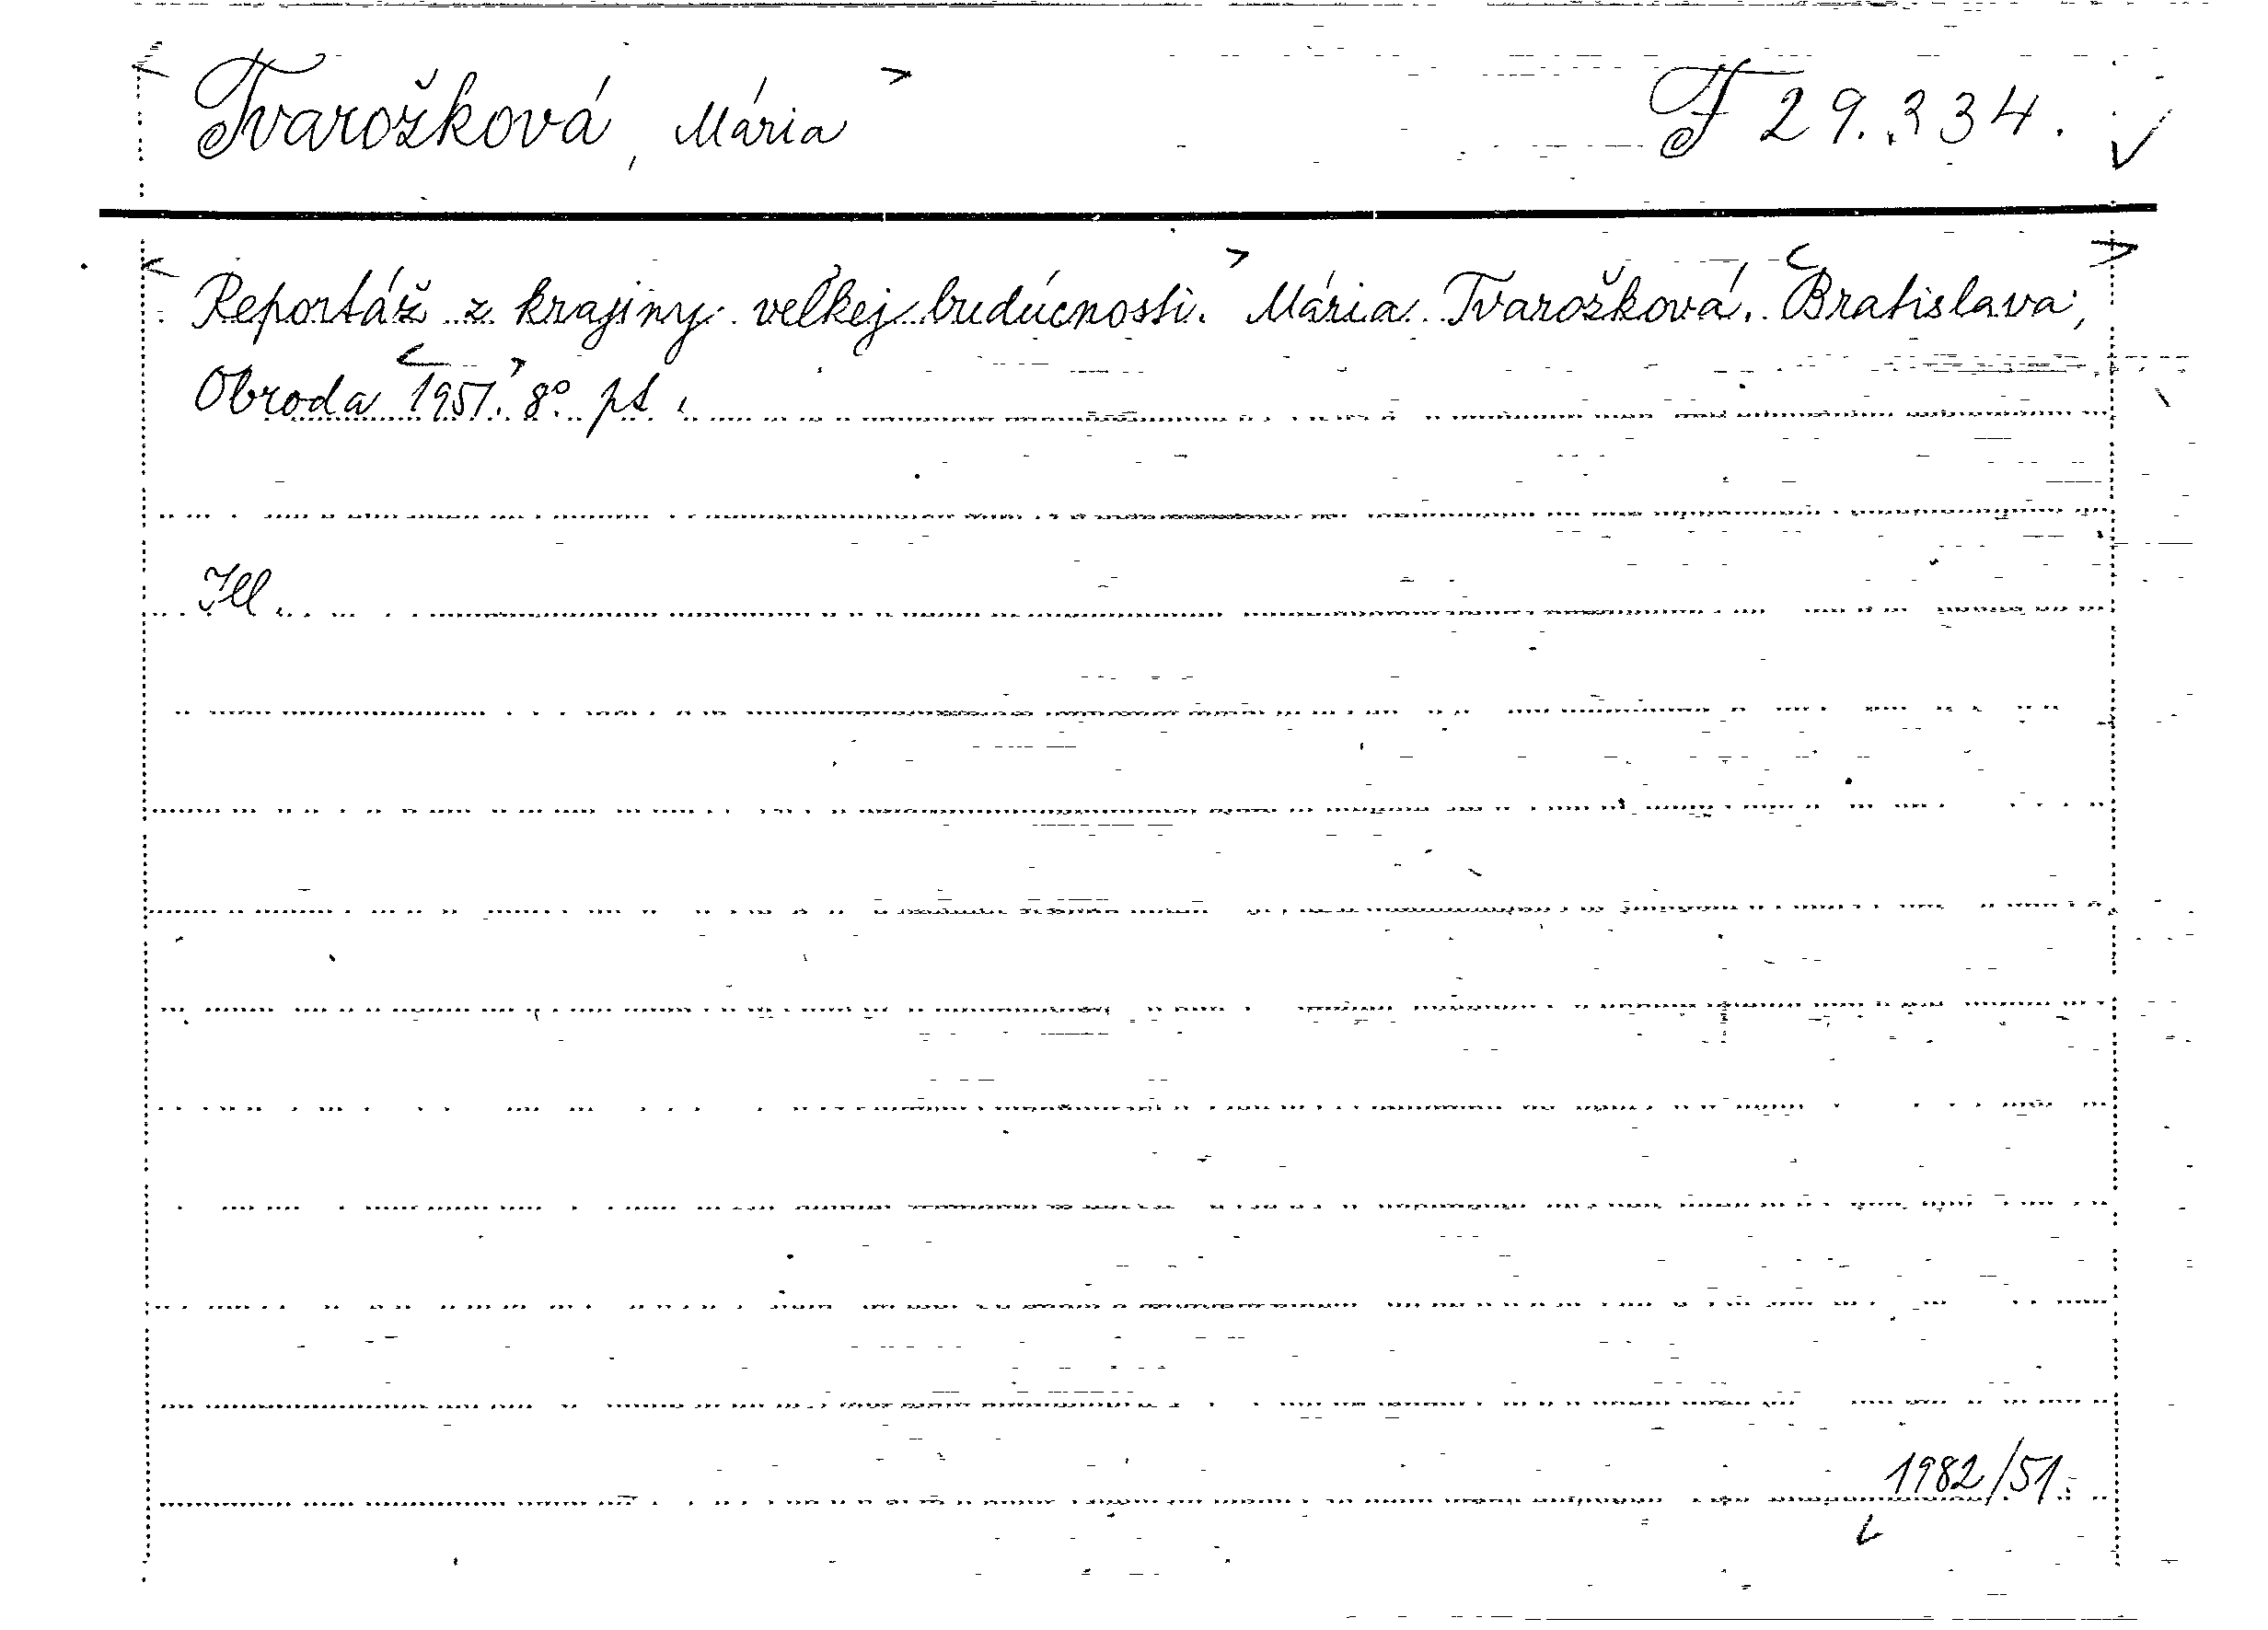 Tvarožková, Mária F 29.334.
Reportáž z krajiny veľkej budúcnosti. Mária Tvarožková. Bratislava,
Obroda 1951. 8° pt.
Ill.
1982/51.